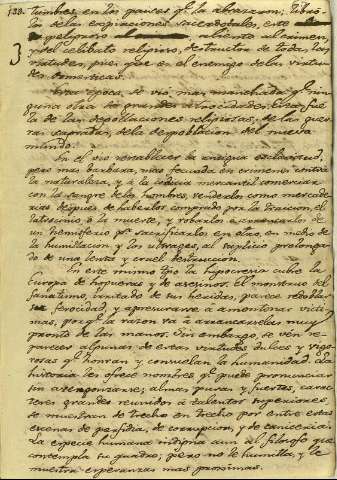 133.
3
tumbres, en los paises qe. la abrazaron; tribu-
to de las expiaciones sacerdotales, este
peligroso aliento al crimen,
y del celibato religioso, destructor de todas las
virtudes, pues que es el enemigo de las virtu-
des domesticas.
Esta época, se vio mas manchada qe. nin-
guna otra de grandes atrocidades. Ella fue
la de las despoblaciones religiosas, de las guer-
ras sagradas, de la despoblacion del nuevo
mundo.
En el vio restablecer la antigua esclavitud,
pero mas barbara, mas fecunda en crimenes contra
la naturaleza, y á la codicia mercantil comerciar
con la sangre de los hombres, venderlos como merca-
derias despues de haberlos comprado por la traicion, el
latrocinio, ó la muerte, y robarlos ó arrancarlos de
un hemisferio pa. sacrificarlos en otro, en medio de
la humillacion y los ultrages, al suplicio prolonga-
do de una lenta y cruel destruccion.
En este mismo tpo. la hypocresia cubre la
Europa de hogueras y de asesinos. El monstruo del
fanatismo, irritado de sus heridas, parece redoblar
su ferocidad, y apresurarse á amontonar victi-
mas, porqe. la razon va á arrancarselas muy
pronto de las manos. Sin embargo, se ven re-
parecer algunas de estas virtudes dulces y vigo-
rosas qe. honran y consuelan la humanidad. La
historia les ofrece nombres qe. puede pronunciar
sin avergonzarse; almas puras y fuertes, carac-
teres grandes reunidos á talentos superiores,
se muestran de trecho en trecho por entre estas
escenas de perfidia, de corrupcion, y de carniceria.
La especie humana indigna aun al filosofo que
contempla su quadro; pero no le humilla, y le
muestra esperanzas mas proximas.